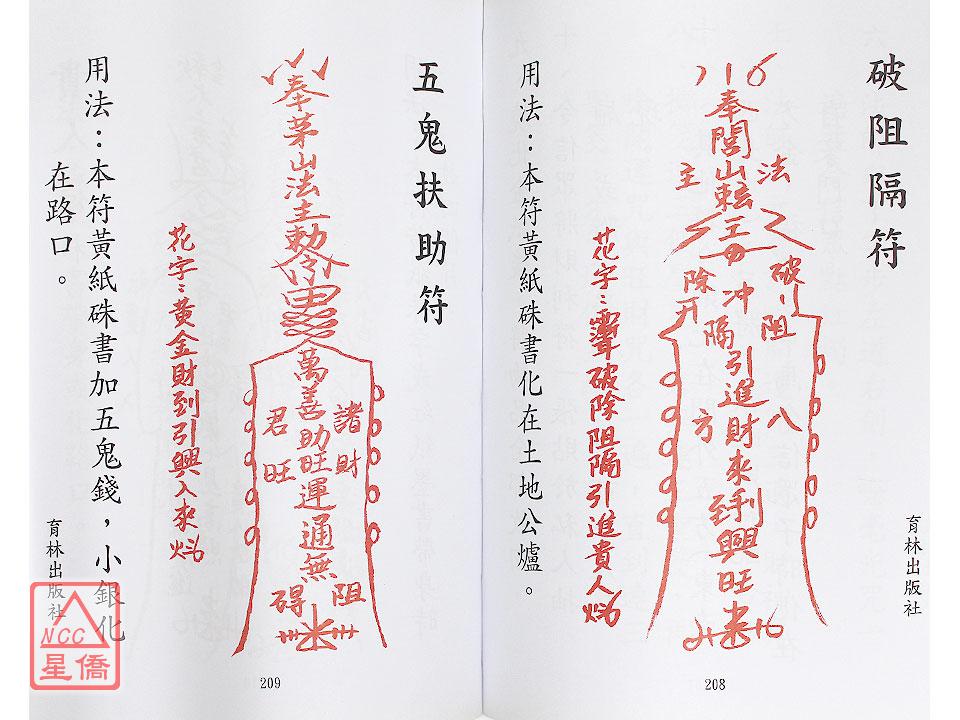 破阻隔符
奉閭山
法
主
破
除
冲
阻
隔
開
引進財來到利興旺
八
方
花字：
破除阻隔引進貴人
用法：本符黃紙硃書化在土地公爐。
育林出版社
208
五鬼扶助符
奉茅山法主勅令
萬善助旺運通無
諸財
君旺
阻
碍
花字：黃金財到引興入來
用法：本符黃紙硃書加五鬼錢，小銀化
在路口。
育林出版社
209
NCC
星僑